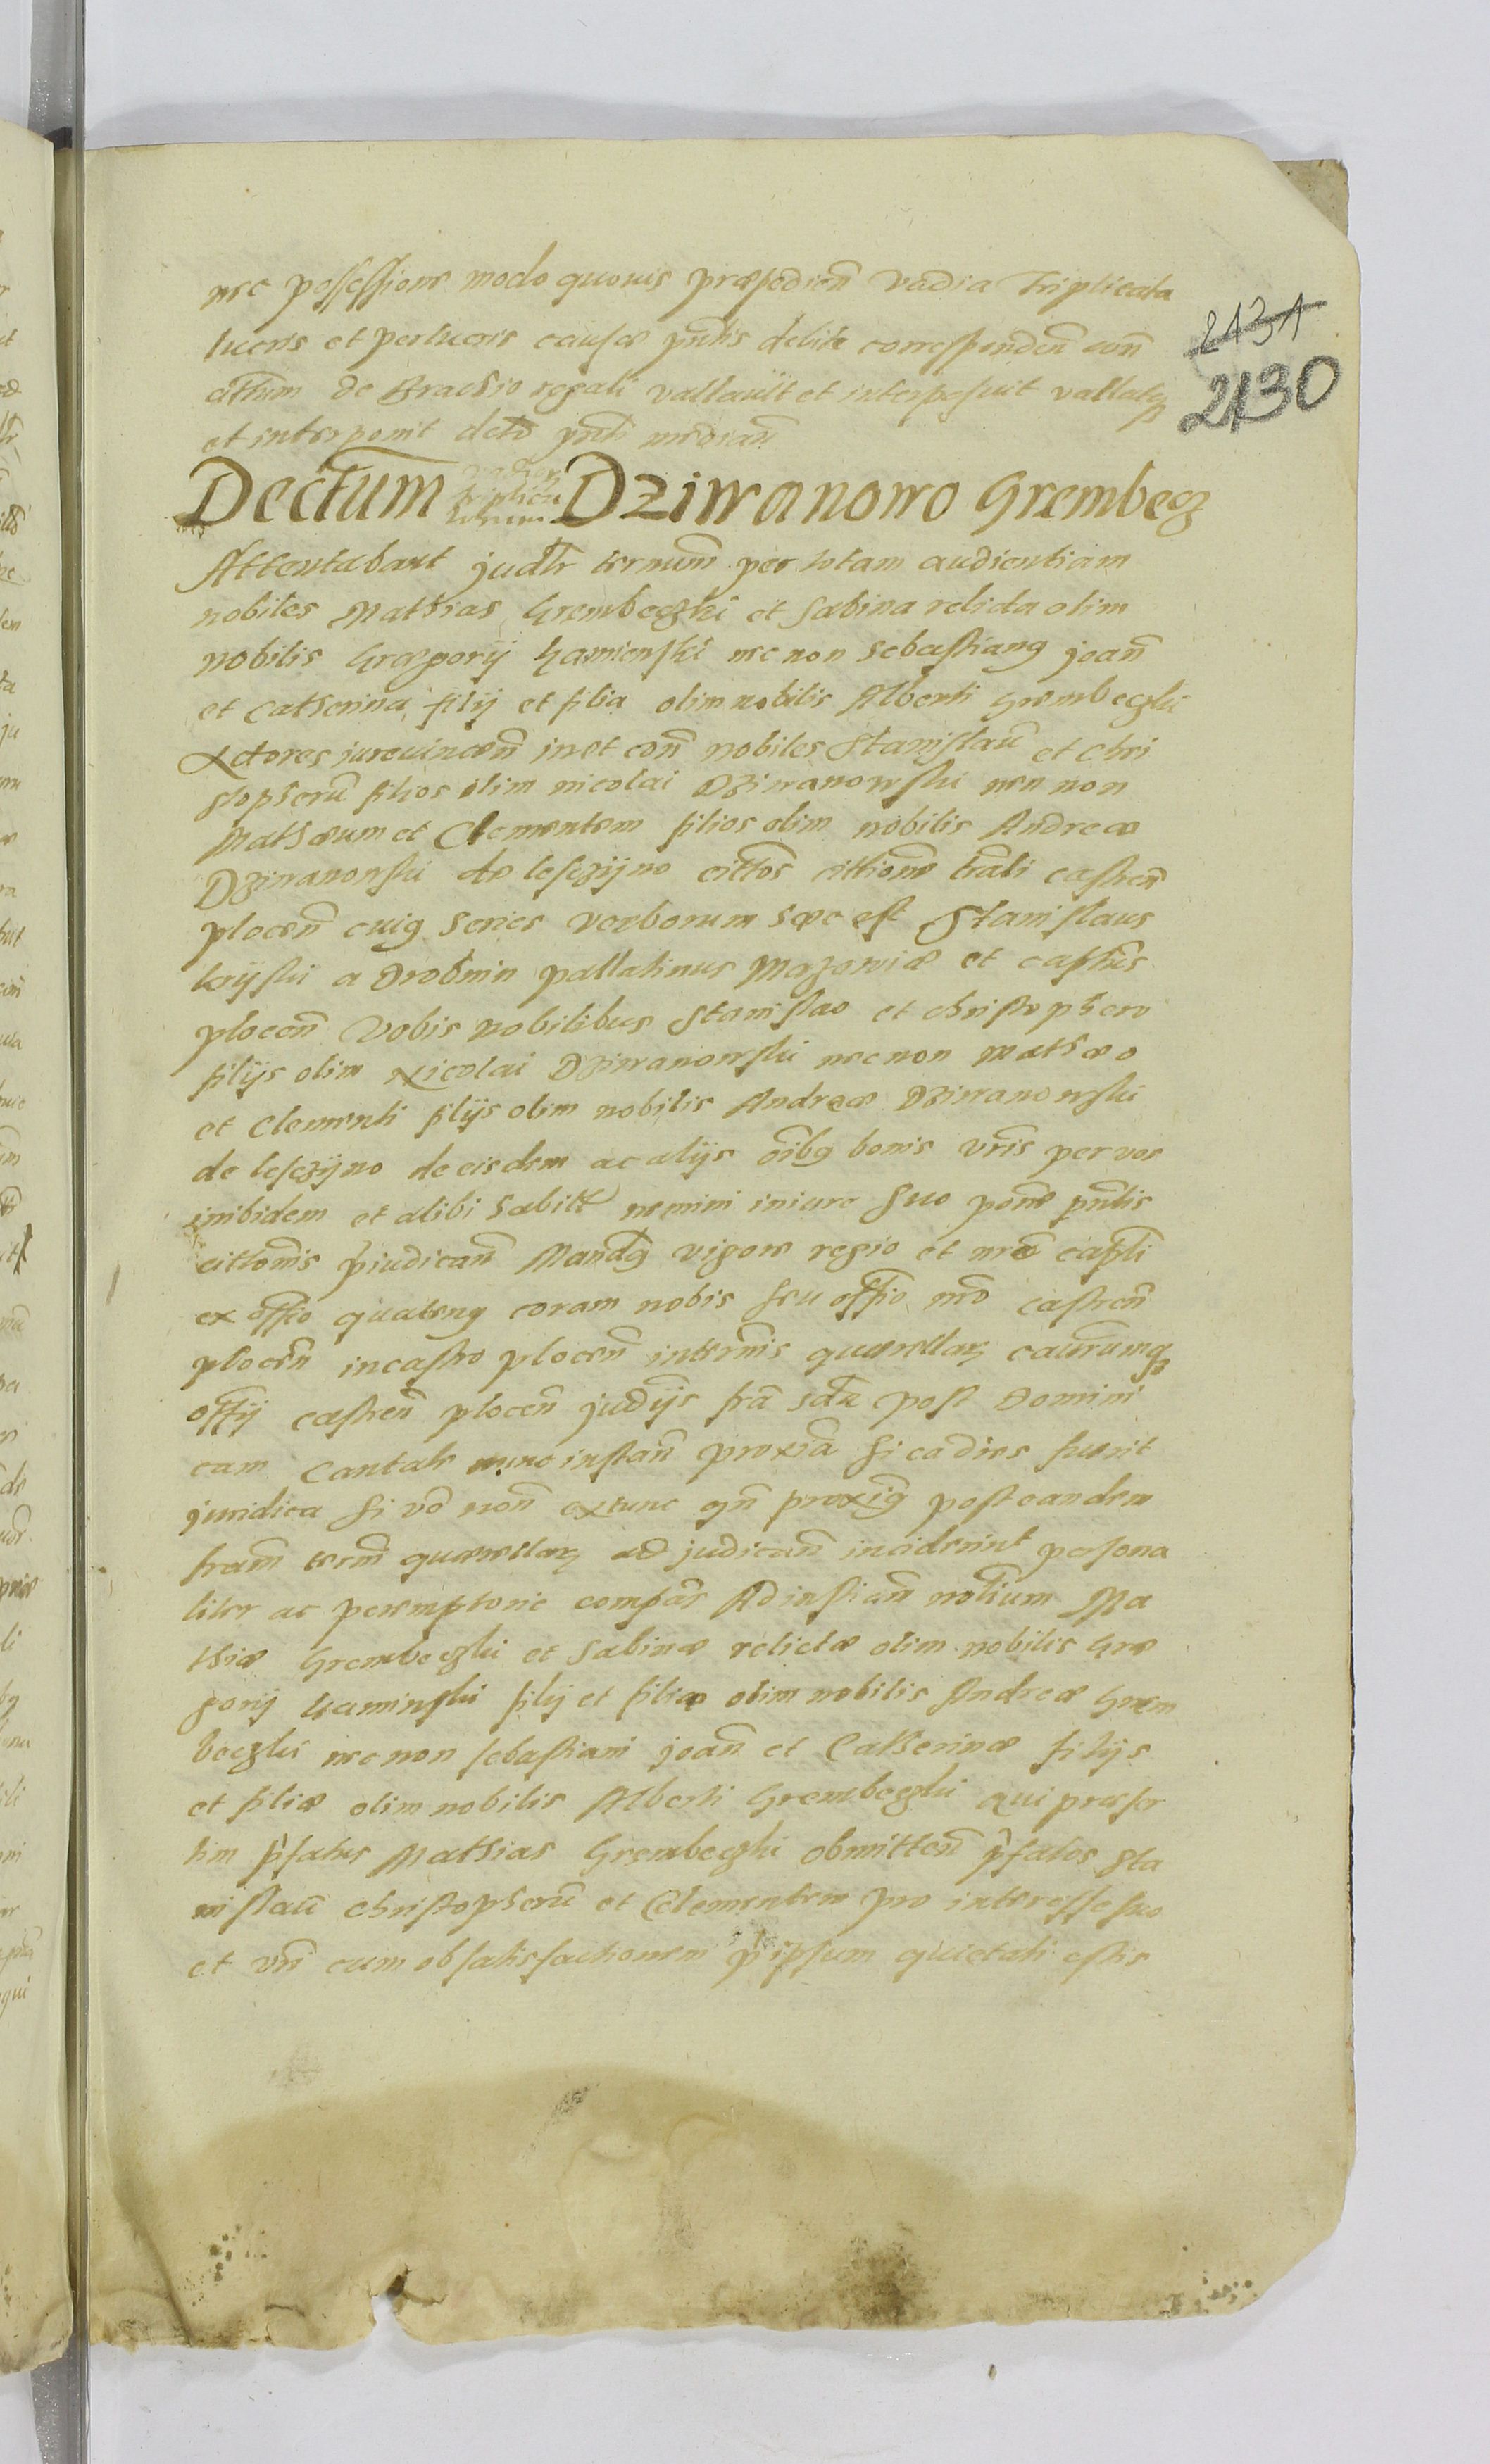 nec possessione modo quovis præpedien̄ vadia triplicata
lucris et perlucris causæ pn̄tis debite corresponden̄ con̄
de Brachio regali vallavit et interposuit vallatq̨
et interponit deto pn̄ti median̄
2131
2130
Dectum vadior triplicis Dziwanowo Grembecz
Attentabant judlr ternum per totam audientiam
nobiles Mathias Grembeczki et Sabina relicta olim
nobilis Græegorij Kamienski nec non Sebastiang Joan̄
et Catherina filij et filia olim nobilis Alberti Grembeczki
Actores jurevincen̄ in et con̄ nobiles Stanislau̅ et Chri
stopheru̅ filios olim Nicolai Dziwanowski nen non
Mathæum et Clementem filios olim nobilis Andreæ
Dziwanowski de lesczijno citt̄os citt̄ione tral̄i castren̄
plocen̄ cuig series verborum hæc est Stanislaus
krijski a Drobnin pallatinus Mazowiæ et capt̄ns
plocen̄ Vobis nobilibus Stanislao et Christophero
filijs olim Nicolai Dziwanowski nec non Mathæo
et Clementi filijs olim nobilis Andreæ Dziwanowski
de lesczijno de eisdem ac alijs o͞ibg bonis vr̄is per vos
inibidem et alibi habitt nemini in iure suo pone pn̄tis
citt̄onis p̄iudican̄ Mandg vigore regio et nr̄o capt̄li
ex off̄io quateng coram nobis seu off̄io nr̄o castren̄
plocen̄ in castro plocen̄ in termīs quærellarꝫ caurumq̨
off̄ij castren̄ plocen̄ judijs fr̄a scda post Domini
cam Cantate nunc instan̄ proxīa si ea dies fuerit
juridica si vō non̄ extunc qn̄ proxīg post eandem
fr̄am term̄ quærellarꝫ ad judican̄ inciderint persona
liter ac peremptorie compār Ad instian̄ nobilium Ma
thiæ Grembeczki et Sabinæ relictæ olim nobilis Græ
gorij Kaminski filij et filiæ olim nobilis Andreæ Grem
beczki nec non Sebastiani Joan̄ et Catherinæ filijs
et filiæ olim nobilis Alberti Grembeczki qui præser
tim p̄fatus Mathias Grembeczki obmitten̄ p̄fatos Sta
nislau̅ Christopheru̅ et Clementem pro interesse suo
et vr̄i cum ob satisfactionem p ipsum quietati estis